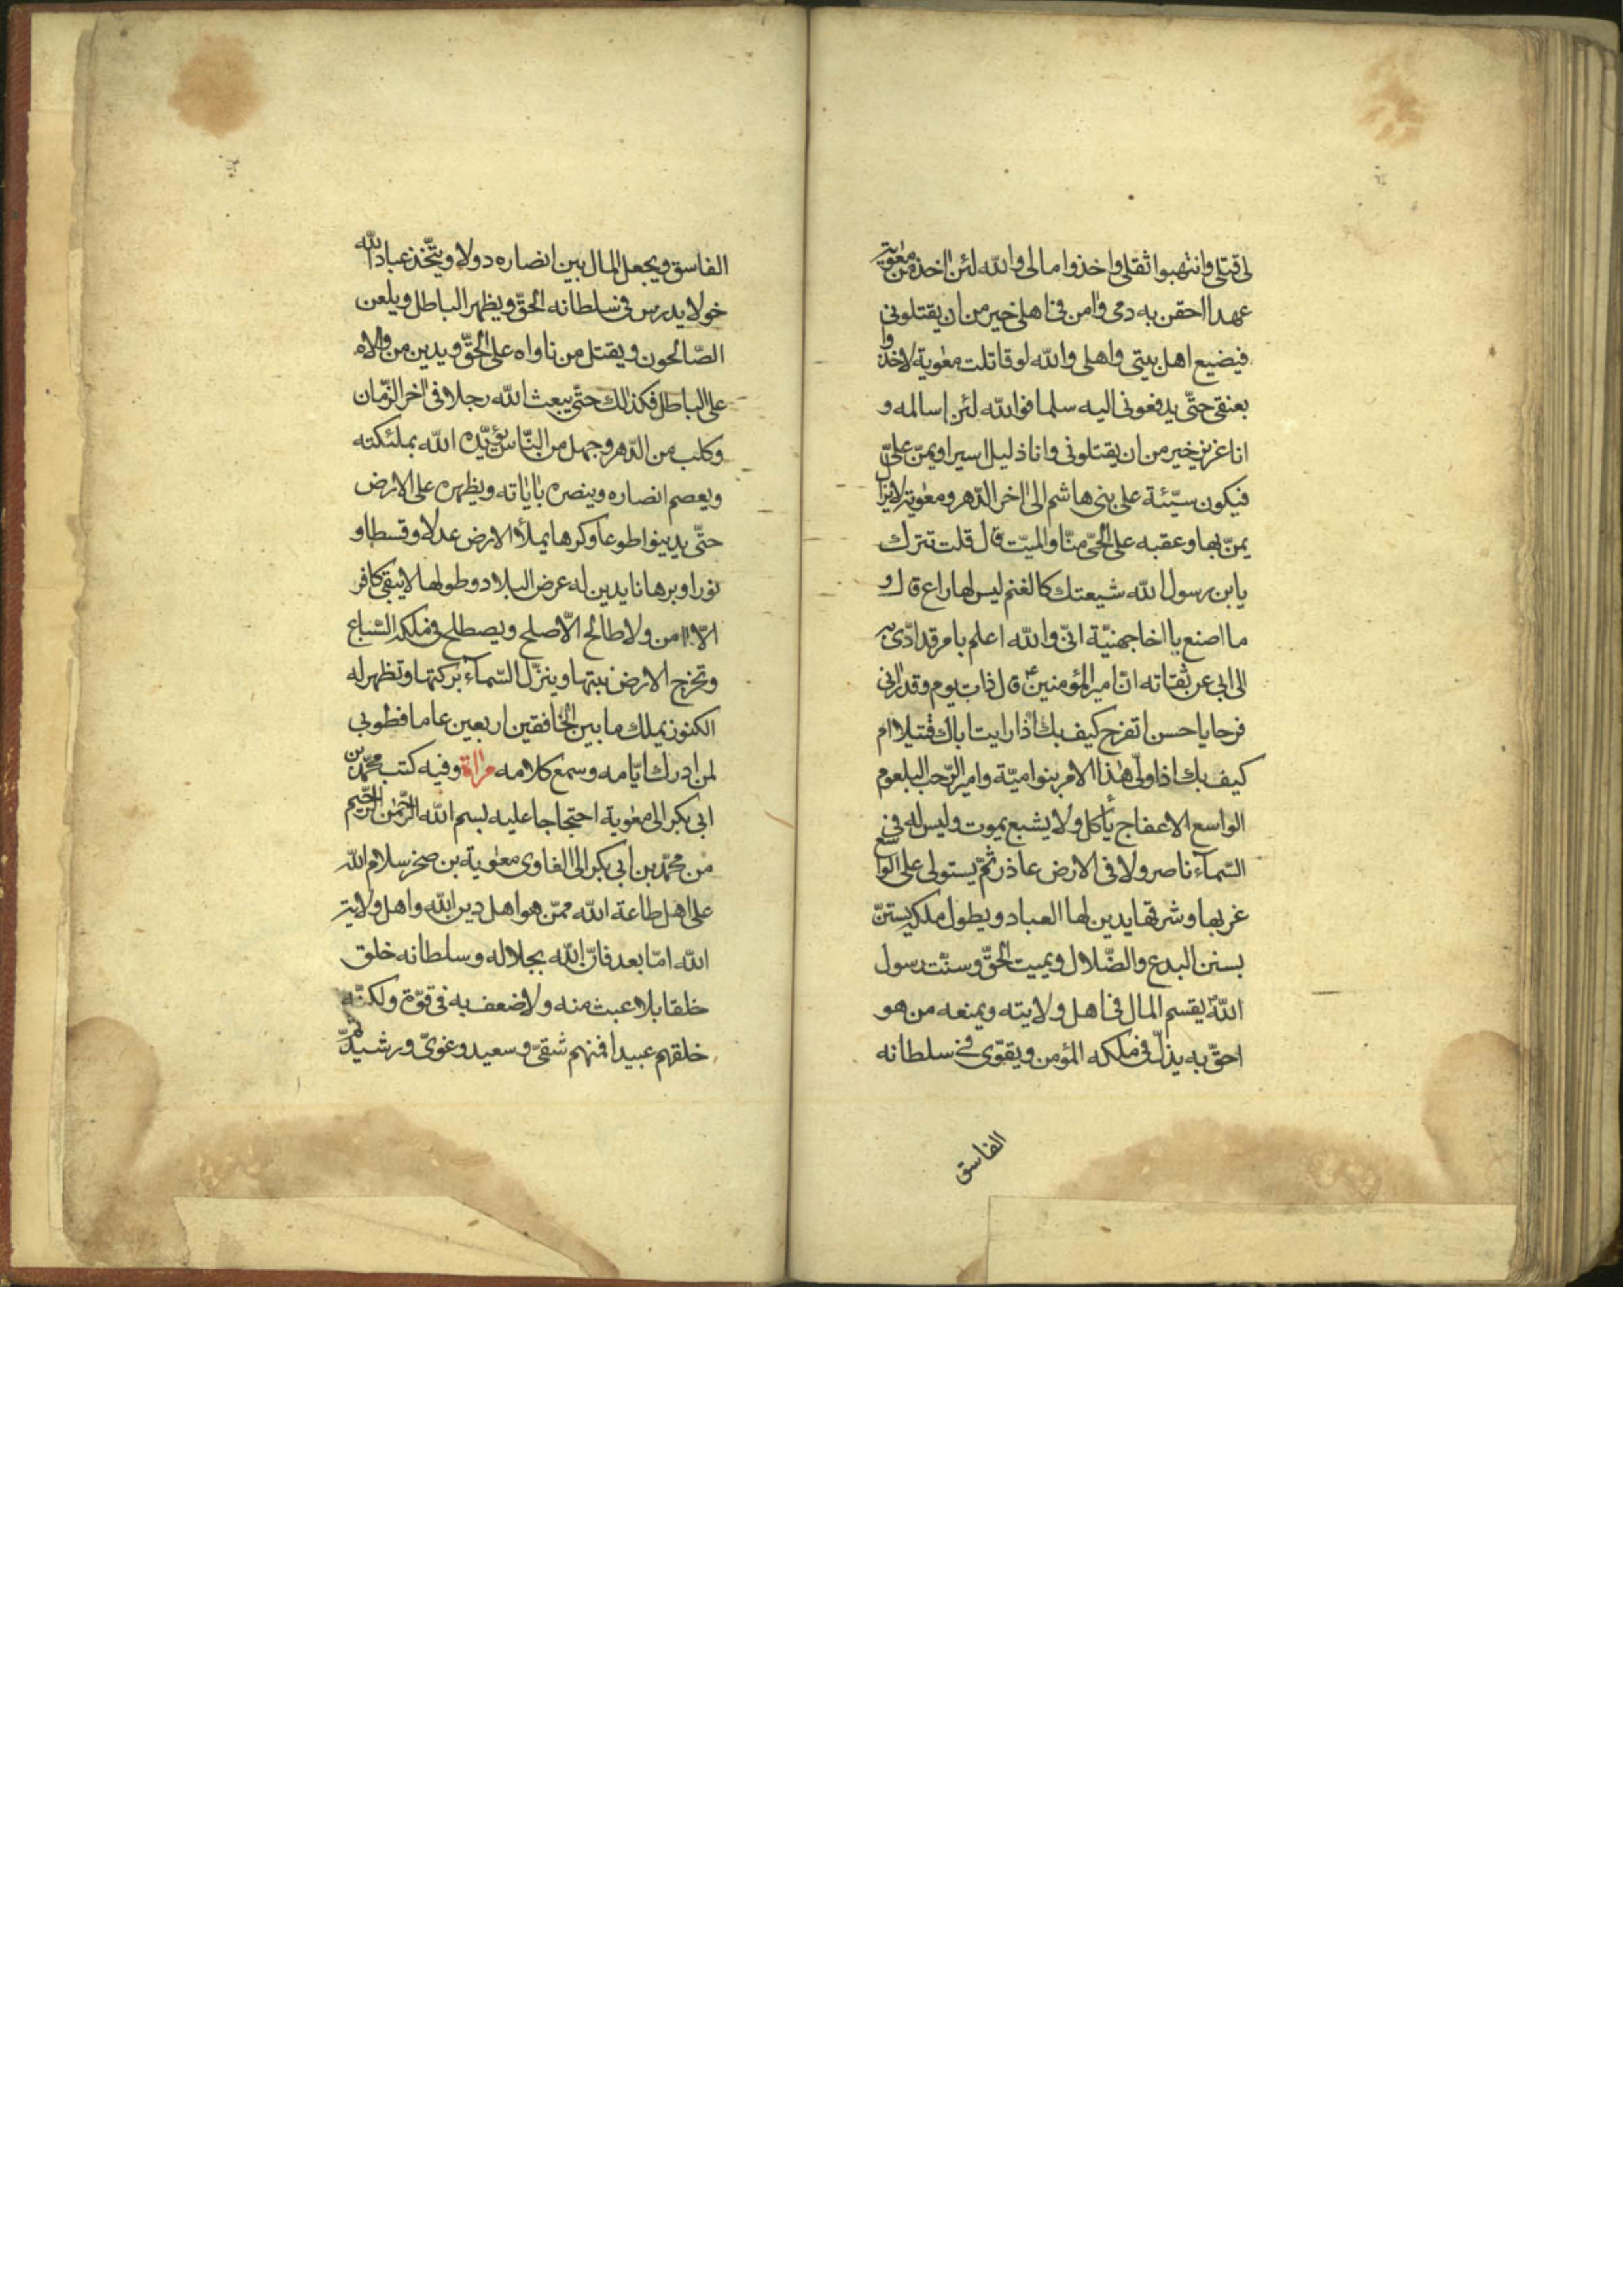 لى قتلى وانتهبوا ثقلى واخذوا مالى والله لئن اخذ من معوية
عهدا احقن به دمى وامن فى اهلى خير من ان يقتلونى
فيضيع اهل بيتى واهلى والله لو قاتلت معوية لاخذوا
بعنقى حتّى يدفعونى اليه سلما فوالله لئن اسالمه و
انا عزيز خير من ان يقتلونى وانا ذليل اسير او يمنّ علىّ
فيكون سيّئة على بنى هاشم الى اخر الدّهر ومعوية لا يزال
يمنّ بها وعقبه على الحىّ منّا والميّت قال قلت تترك
يابن رسول الله شيعتك كالغنم ليس لها راع قال و
ما اصنع يا اخا جهنيّة انّى والله اعلم بامر قد ادّى به
الى ابى عن ثقاته انّ امير المؤمنينؑ قال ذات يوم وقد رانى
فرحا يا حسن اتفرح كيف بك اذا رايت اباك قتيلا ام
كيف بك اذا ولى هذا الامر بنوا ميّة واميرالرّحب البلعوم
الواسع الاعفاج يأكل ولا يشبع يموت وليس له فى
السّمآء ناصر ولا فى الارض عاذر ثمّ يستولى على الواسع
غربها وشرقها يدين لها العباد ويطول ملكه يستنّ
بسنن البدع والضّلال ويميت الحقّ وسنّت رسول
اللهؐ يقسم المال فى اهل ولايته ويمنعه من هو
احقّ به يذلّ فى ملكه المؤمن ويقوّى فى سلطانه
الفاسق
الفاسق ويجعل المال بين انصاره دولا ويتّخذ عباد الله
خولا يدرس فى سلطانه الحقّ ويظهر الباطل ويلعن
الصّالحون ويقتل من ناواه على الحقّ ويدين من والاه
على الباطل فكذلك حتّى يبعث الله رجلا فى اخر الزّمان
وكلب من الدّهر وجهل من النّاس يؤيّده الله بملئكته
ويعصم انصاره وينصره باياته ويظهره على الارض
حتّى يدينوا طوعا وكرها يملأ الارض عدلا وقسطا و
نورا وبرهانا يدين له عرض البلاد وطولها لا يبقى كافر
الّا امن ولا طالح الّا صلح ويصطلح فى ملكه السّباع
وتخرج الارض نبتها وينزّل السّمآء بركتها وتظهر له
الكنوز يملك ما بين الخافقين اربعين عاما فطوبى
لمن ادرك ايّامه وسمع كلامه مراة وفيه كتب محمّد بن
ابى بكر الى معوية احتجاجا عليه بسم الله الرّحمن الرّحيم
من محمّد بن ابى بكر الى الغاوى معوية بن صخر سلام الله
على اهل طاعة الله ممّن هو اهل دين الله واهل ولاية
الله امّا بعد فانّ الله بجلاله وسلطانه خلق
خلقا بلا عبث منه ولا ضعف به فى قوّة ولكنّه
خلقهم عبيدا فمنهم شقىّ وسعيد وغوىّ ورشيد ثمّ